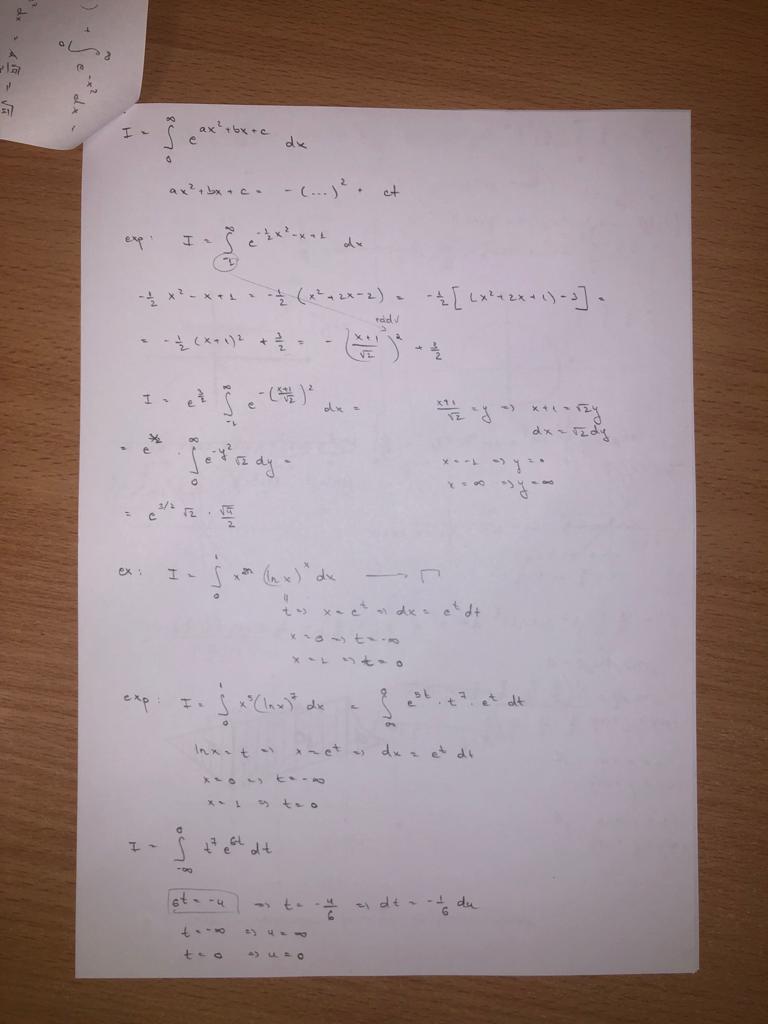 ) + ∫₀^∞ e^{-x²} dx =
dx = √π/2 = √π
I = ∫₀^∞ e^{ax²+bx+c} dx
ax²+bx+c = -(...)² + ct
exp: I = ∫₋₁^∞ e^{-½x²-x+1} dx
-½x² - x + 1 = -½(x²+2x-2) = -½[(x²+2x+1)-3] =
= -½(x+1)² + 3/2 = -((x+1)/√2)² + 3/2
I = e^{3/2} ∫₋₁^∞ e^{-((x+1)/√2)²} dx = (x+1)/√2 = y ⇒ x+1 = √2y
dx = √2dy
= e^{3/2} · ∫₀^∞ e^{-y²} √2 dy = x=-1 ⇒ y=0
x=∞ ⇒ y=∞
= e^{3/2} √2 · √π/2
ex: I = ∫₀^1 x^m (ln x)^x dx → Γ
t ⇒ x = e^t ⇒ dx = e^t dt
x=0 ⇒ t=-∞
x=1 ⇒ t=0
exp: I = ∫₀^1 x⁵(ln x)⁷ dx = ∫_∞^0 e^{5t} · t⁷ · e^t dt
ln x = t ⇒ x = e^t ⇒ dx = e^t dt
x=0 ⇒ t=-∞
x=1 ⇒ t=0
I = ∫_{-∞}^0 t⁷ e^{6t} dt
6t = -u ⇒ t = -u/6 ⇒ dt = -1/6 du
t=-∞ ⇒ u=∞
t=0 ⇒ u=0